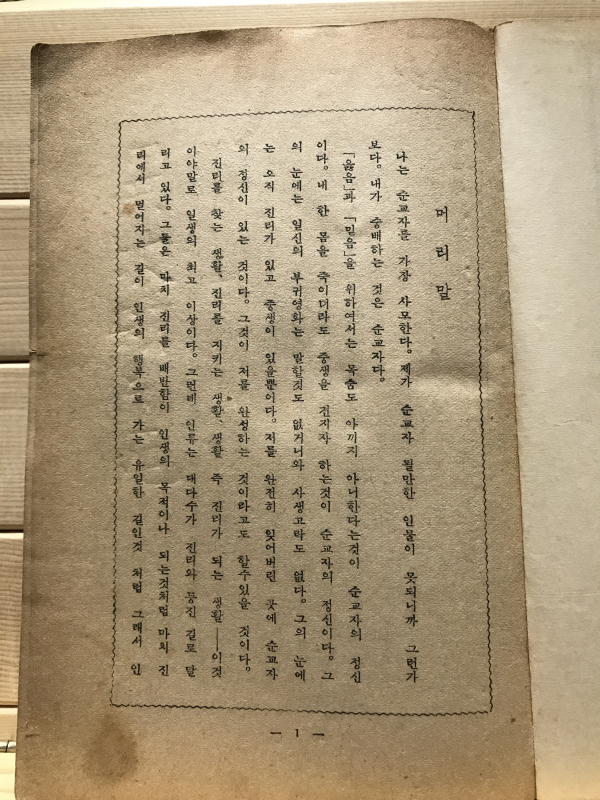 머리말
나는 순교자를 가장 사모한다。제가 순교자 될만한 인물이 못되니까 그런가
보다。내가 숭배하는 것은 순교자다。
「옳음」과 「믿음」을 위하여서는 목숨도 아끼지 아니한다는것이 순교자의 정신
이다。내 한 몸을 죽이더라도 중생을 건지자 하는것이 순교자의 정신이다。그
의 눈에는 일신의 부귀영화는 말할것도 없거니와 사생고락도 없다。그의 눈에
는 오직 진리가 있고 중생이 있을뿐이다。저를 완전히 잊어버린 곳에 순교자
의 정신이 있는 것이다。그것이 저를 완성하는 것이라고도 할수있을 것이다。
진리를 찾는 생활、진리를 지키는 생활、생활 즉 진리가 되는 생활──이것
이야말로 일생의 최고 이상이다。그런데 인류는 대다수가 진리와 등진 길로 달
리고 있다。그들은 마치 진리를 배반함이 인생의 목적이나 되는것처럼 마치 진
리에서 멀어지는 길이 인생의 행복으로 가는 유일한 길인것 처럼 그래서 인
— 1 —